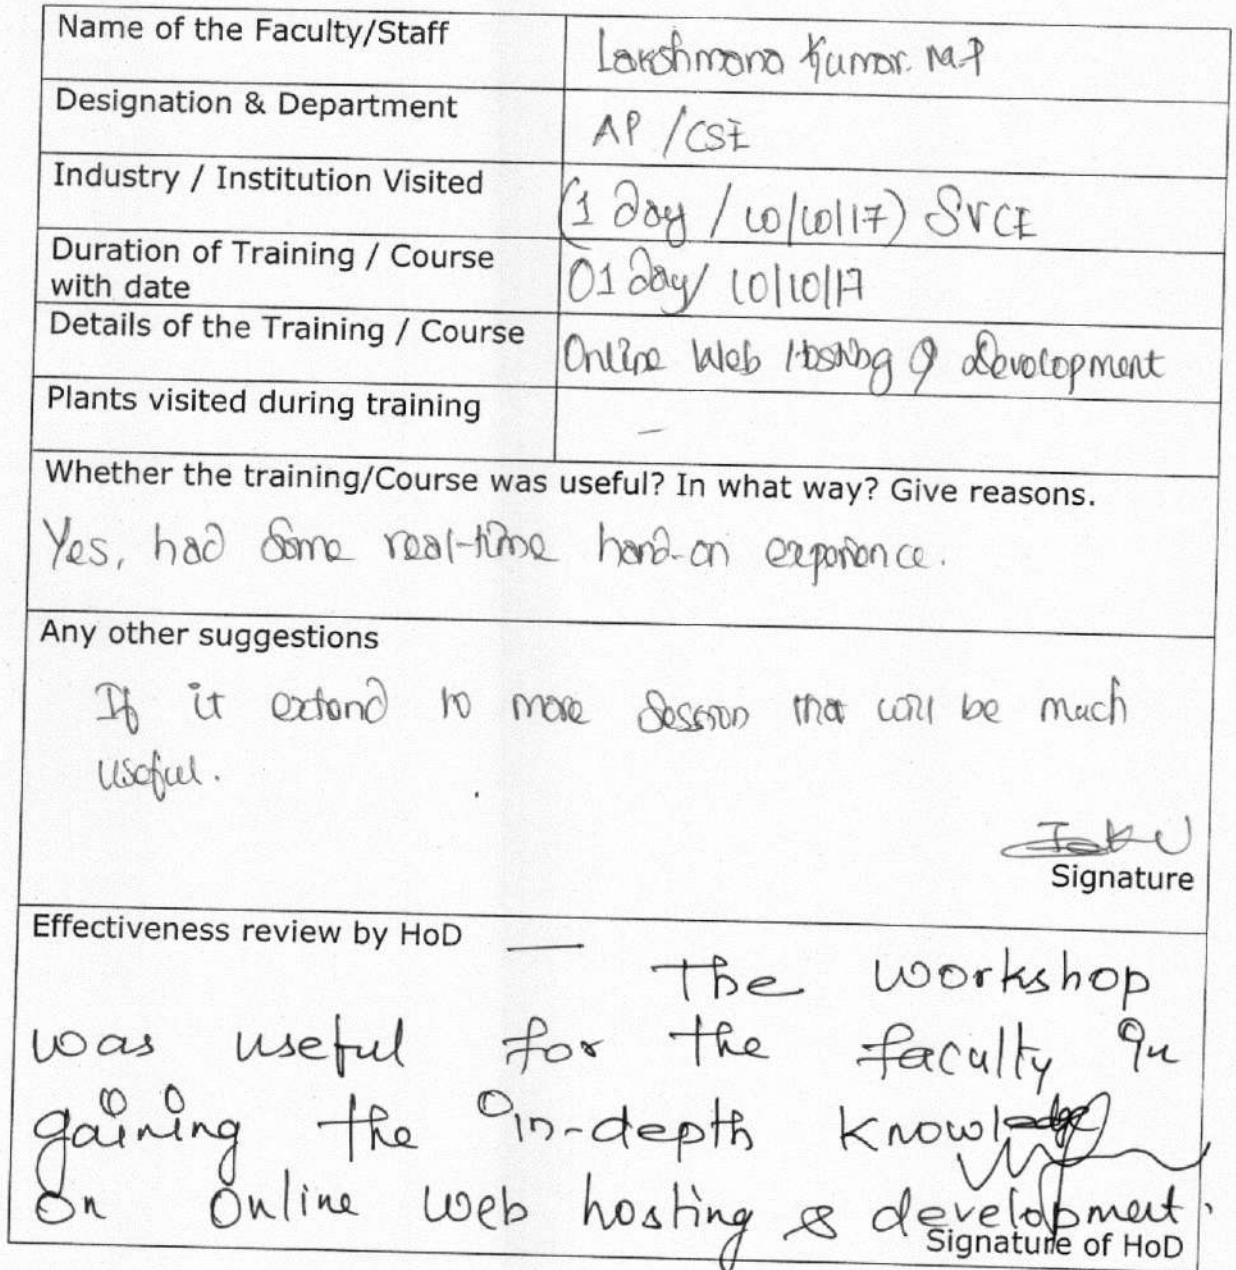 Name of the Faculty/Staff
Lakshmana Kumar. M.P
Designation & Department
AP / CSE
Industry / Institution Visited
(1 day / 10/10/17) SVCE
Duration of Training / Course
with date
01 day/ 10/10/17
Details of the Training / Course
Online Web Hosting & Development
Plants visited during training
—
Whether the training/Course was useful? In what way? Give reasons.
Yes, had some real-time hand-on experience.
Any other suggestions
If it extend to more session that will be much
useful.
Signature
Effectiveness review by HoD — The workshop
was useful for the faculty in
gaining the in-depth knowledge
on online web hosting & development.
Signature of HoD